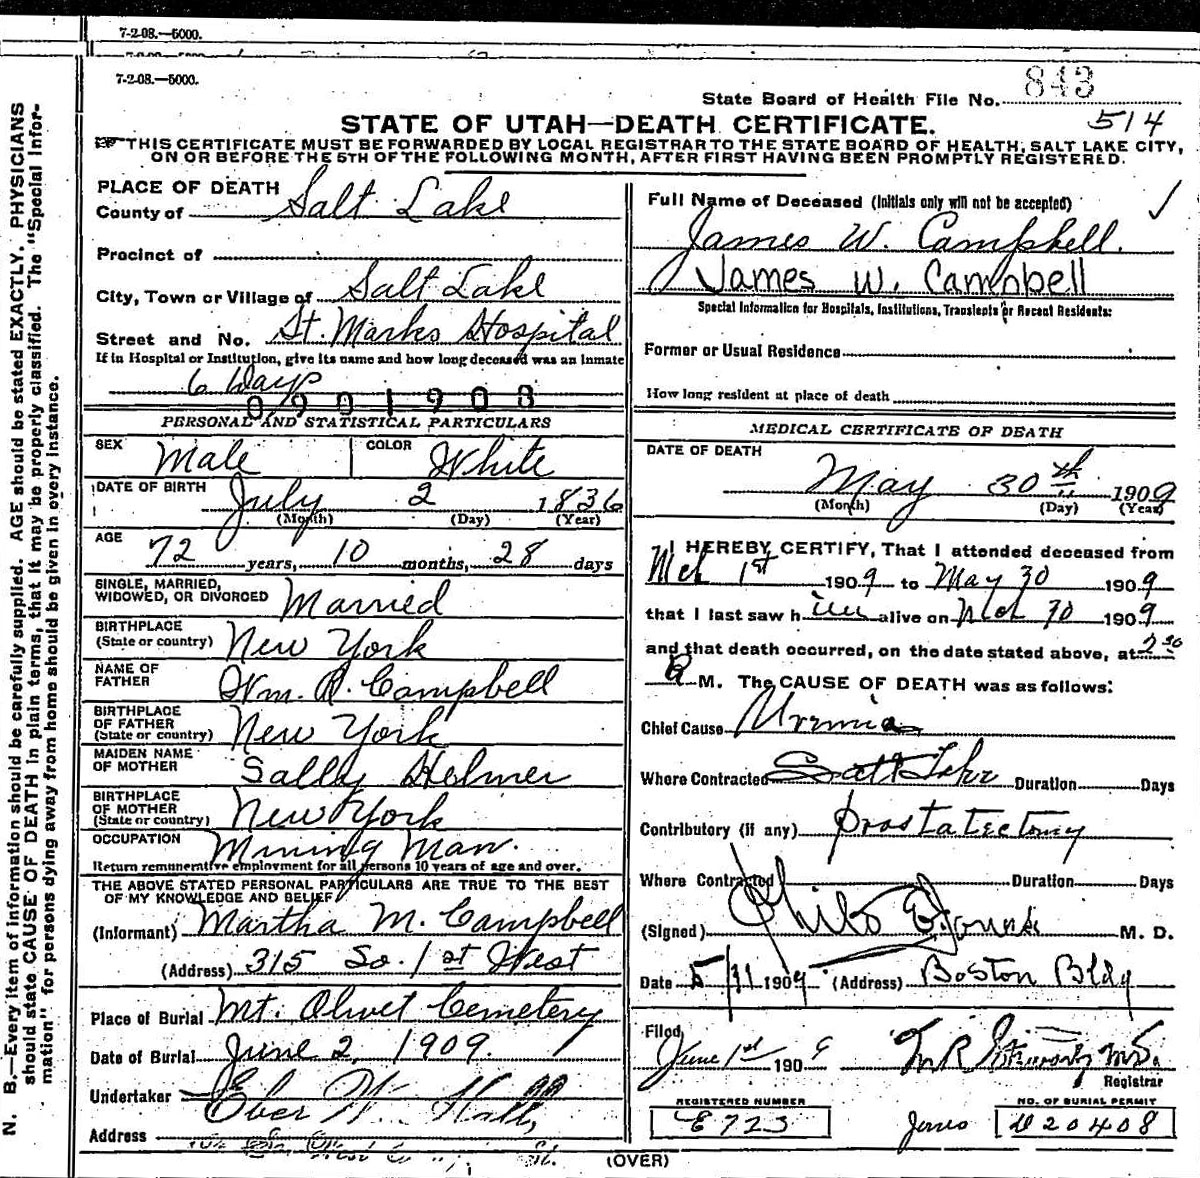 7-2-08.—5000.
7-2-08.—5000.
State Board of Health File No. 843
514
STATE OF UTAH—DEATH CERTIFICATE.
THIS CERTIFICATE MUST BE FORWARDED BY LOCAL REGISTRAR TO THE STATE BOARD OF HEALTH, SALT LAKE CITY,
ON OR BEFORE THE 5TH OF THE FOLLOWING MONTH, AFTER FIRST HAVING BEEN PROMPTLY REGISTERED.
N. B.—Every item of information should be carefully supplied. AGE should be stated EXACTLY. PHYSICIANS
should state CAUSE OF DEATH in plain terms, that it may be properly classified. The "Special Infor-
mation" for persons dying away from home should be given in every instance.
PLACE OF DEATH
County of Salt Lake
Precinct of
City, Town or Village of Salt Lake
Street and No. St. Marks Hospital
If in Hospital or Institution, give its name and how long deceased was an inmate
6 Days
0901908
PERSONAL AND STATISTICAL PARTICULARS
SEX Male COLOR White
DATE OF BIRTH July 2 1836
(Month) (Day) (Year)
AGE 72 years, 10 months, 28 days
SINGLE, MARRIED,
WIDOWED, OR DIVORCED Married
BIRTHPLACE
(State or country) New York
NAME OF
FATHER Wm. R. Campbell
BIRTHPLACE
OF FATHER
(State or country) New York
MAIDEN NAME
OF MOTHER Sally Helmer
BIRTHPLACE
OF MOTHER
(State or country) New York
OCCUPATION Mining Man.
Return remunerative employment for all persons 10 years of age and over.
THE ABOVE STATED PERSONAL PARTICULARS ARE TRUE TO THE BEST
OF MY KNOWLEDGE AND BELIEF
(Informant) Martha M. Campbell
(Address) 315 So. 1st West
Place of Burial Mt. Olivet Cemetery
Date of Burial June 2, 1909.
Undertaker Eber W. Hall,
Address
Full Name of Deceased (Initials only will not be accepted)
James W. Campbell.
James W. Campbell
Special Information for Hospitals, Institutions, Transients or Recent Residents:
Former or Usual Residence
How long resident at place of death
MEDICAL CERTIFICATE OF DEATH
DATE OF DEATH
May 30th 1909
(Month) (Day) (Year)
I HEREBY CERTIFY, That I attended deceased from
Mch 1st 1909 to May 30 1909
that I last saw him alive on Mch 30 1909
and that death occurred, on the date stated above, at 2 30
M. The CAUSE OF DEATH was as follows:
Chief Cause Uremia
Where Contracted Salt Lake Duration Days
Contributory (if any) Prostatectomy
Where Contracted Duration Days
(Signed) Philo E. Jones M. D.
Date 5/31 1909 (Address) Boston Bldg
Filed
June 1st 1909 M.D.
Registrar
REGISTERED NUMBER
E723
Jones
NO. OF BURIAL PERMIT
D20408
(OVER)